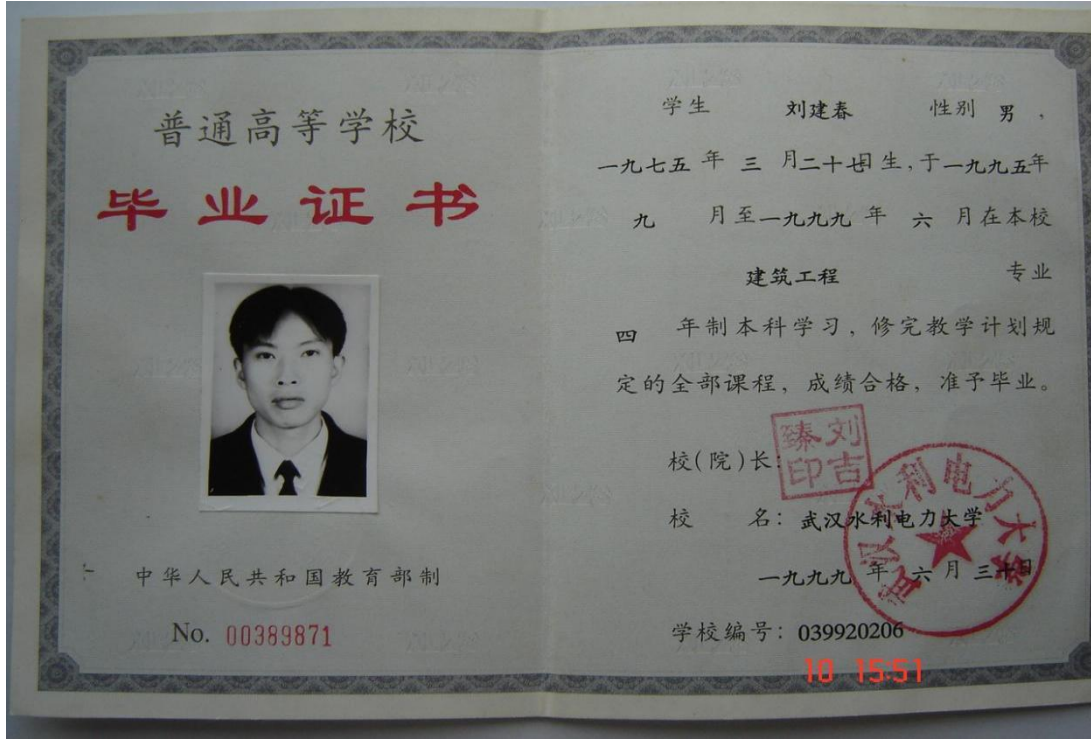 普通高等学校
毕业证书
中华人民共和国教育部制
No. 00389871
学生 刘建春 性别 男,
一九七五 年 三 月二十七日生,于一九九五年
九 月至一九九九 年 六 月在本校
建筑工程 专业
四 年制本科学习,修完教学计划规
定的全部课程,成绩合格,准予毕业。
校(院)长:
刘吉臻印
校 名:武汉水利电力大学
武汉水利电力大学
一九九九 年 六 月 三十日
学校编号:039920206
10 15:51